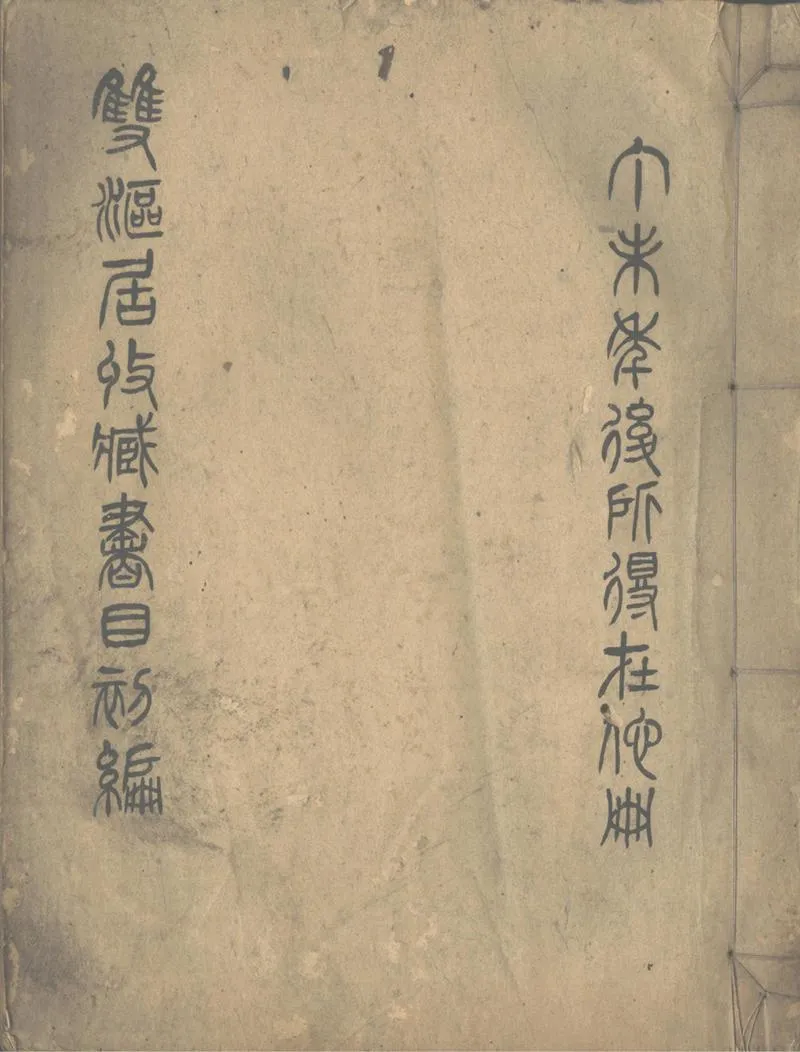 丁未年後所得在他冊
雙漚居收臧書目初編